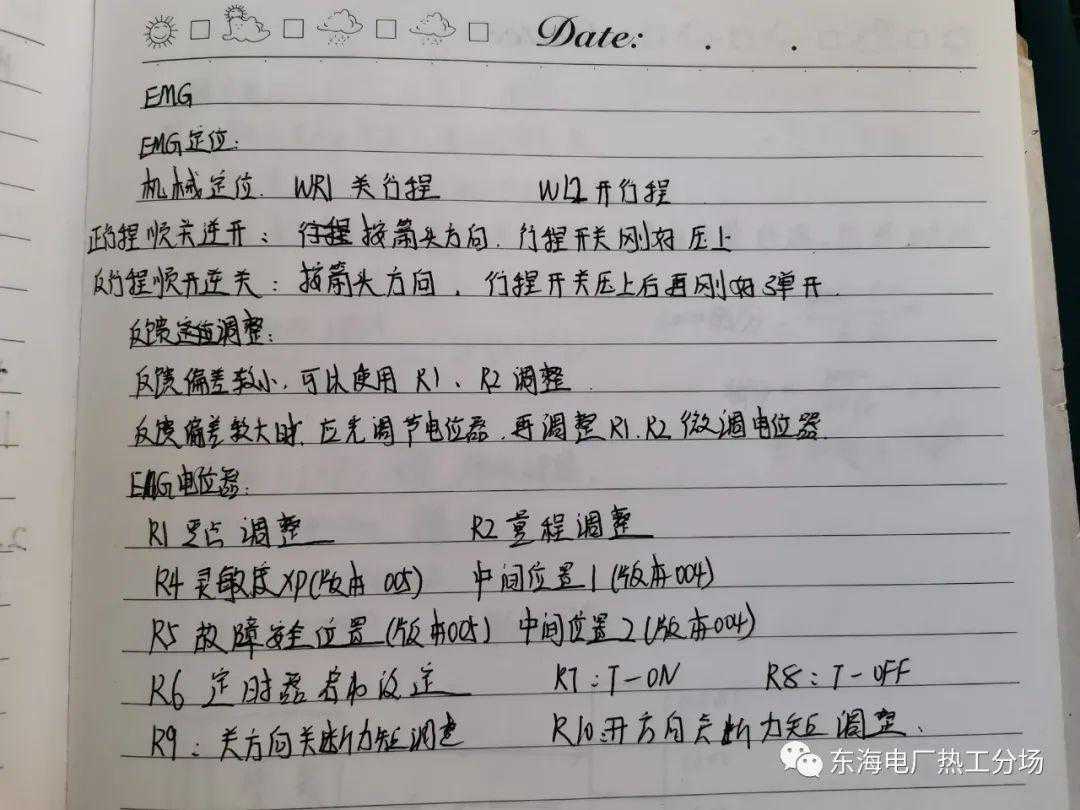 Date: . .
EMG
EMG定位:
机械定位. WR1 关行程 WL2 开行程
正行程顺关逆开: 按箭头方向, 行程开关刚好压上
反行程顺开逆关: 按箭头方向, 行程开关压上后再刚好弹开.
反馈定位调整:
反馈偏差较小, 可以使用 R1、R2 调整
反馈偏差较大时, 应先调节电位器, 再调整 R1、R2 微调电位器.
EMG电位器:
R1 零点调整 R2 量程调整
R4 灵敏度XP(版本 005) 中间位置1(版本004)
R5 故障安全位置(版本005) 中间位置2(版本004)
R6 定时器 设定 R7: T-ON R8: T-OFF
R9: 关方向关断力矩调整 R10:开方向关断力矩调整.
东海电厂热工分场